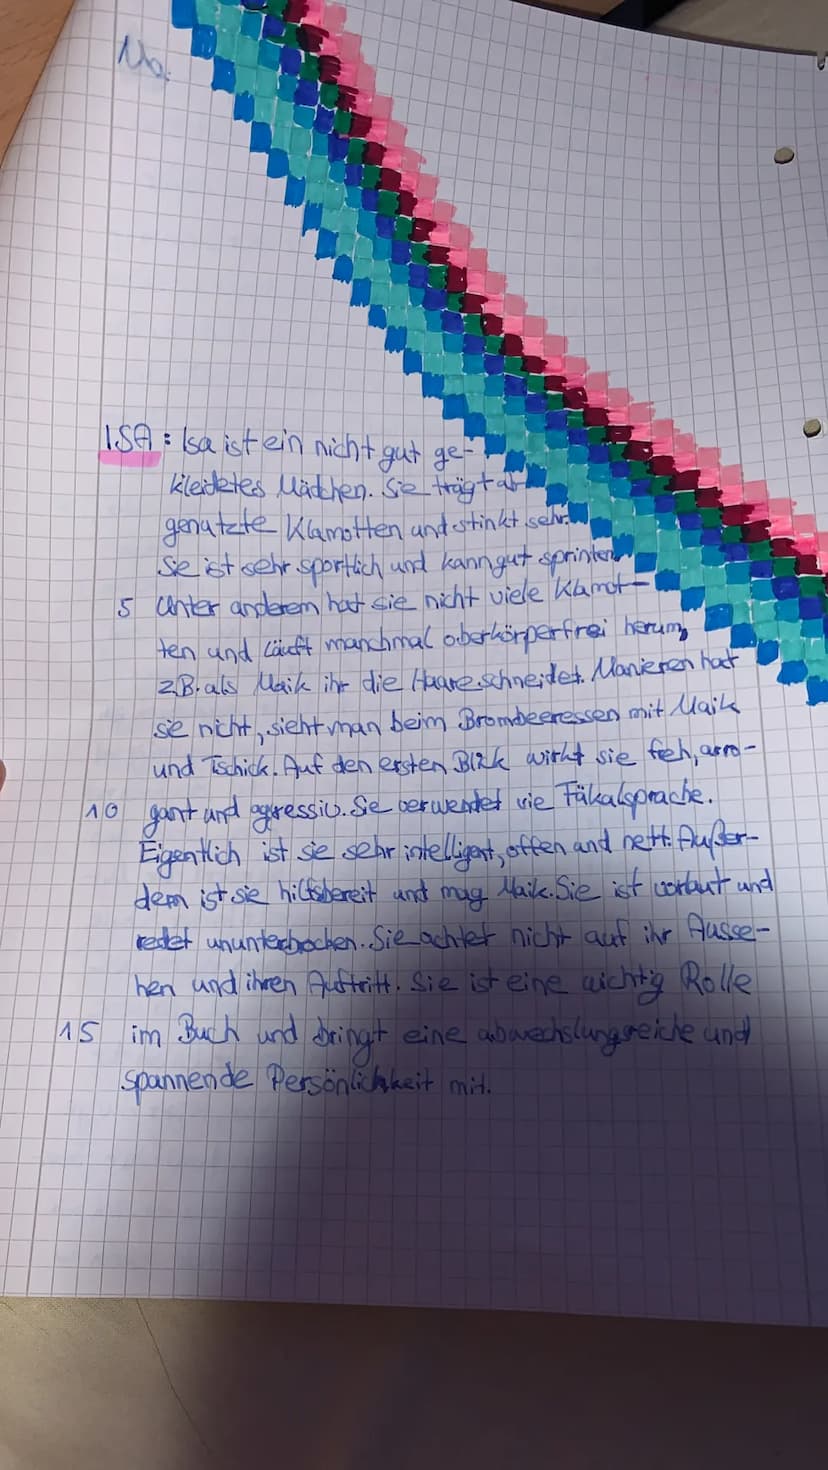 ISA: Isa ist ein nicht gut ge-
kleidetes Mädchen. Sie trägt ab
genutzte Klamotten und stinkt sehr.
Sie ist sehr sportlich und kann gut sprinten
5 Unter anderem hat sie nicht viele Klamot-
ten und läuft manchmal oberkörperfrei herum,
z.B. als Maik ihr die Haare schneidet. Manieren hat
sie nicht, sieht man beim Brombeeressen mit Maik
und Tschick. Auf den ersten Blik wirkt sie freh, arro-
10 gant und agressiv. Sie verwendet vie Fäkalsprache.
Eigentlich ist sie sehr intelligent, offen und nett. Außer-
dem ist sie hilfsbereit und mag Maik. Sie ist vorlaut und
redet ununterbochen. Sie achtet nicht auf ihr Ausse-
hen und ihren Auftritt. Sie ist eine wichtig Rolle
15 im Buch und bringt eine abwechslungsreiche und
spannende Persönlichkeit mit.